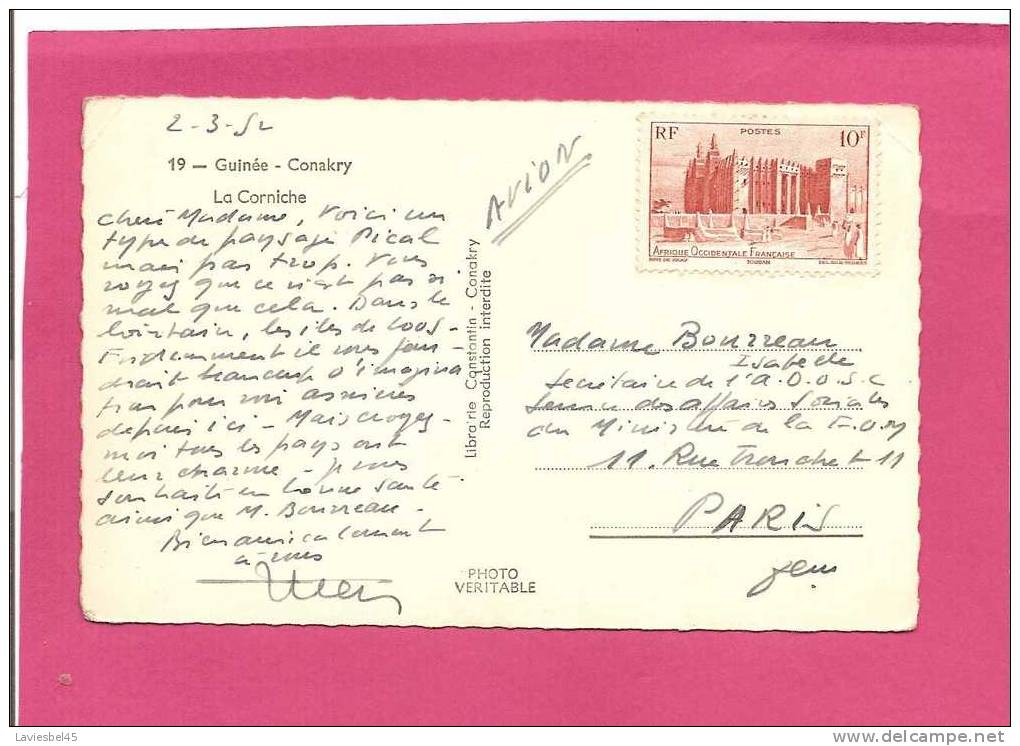 2-3-52
19 — Guinée - Conakry
La Corniche
Chère Madame, Voici un
type de paysage
mais pas trop. Vous
voyez que ce n'est pas si
mal que cela. Dans le
lointain, les îles de Loos -
Evidemment il vous fau-
drait beaucoup d'imagina
tion pour voir
depuis ici - Mais croyez-
moi tous les pays ont
leur charme - Je vous
souhaite une bonne santé
ainsi que M. Bourreau -
Bien amicalement
à vous
AVION
Librairie Constantin - Conakry
Reproduction interdite
PHOTO
VERITABLE
RF POSTES 10F
AFRIQUE OCCIDENTALE FRANÇAISE
Madame Bourreau
Isabelle
Secrétaire de l'A.O.O.S.C
Service des affaires Sociales
du Ministère de la F.O.M
11, Rue Tronchet 11
PARIS
Laviesbel45
www.delcampe.net